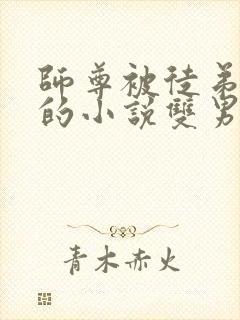 師尊被徒弟
的小說雙男
青木赤火